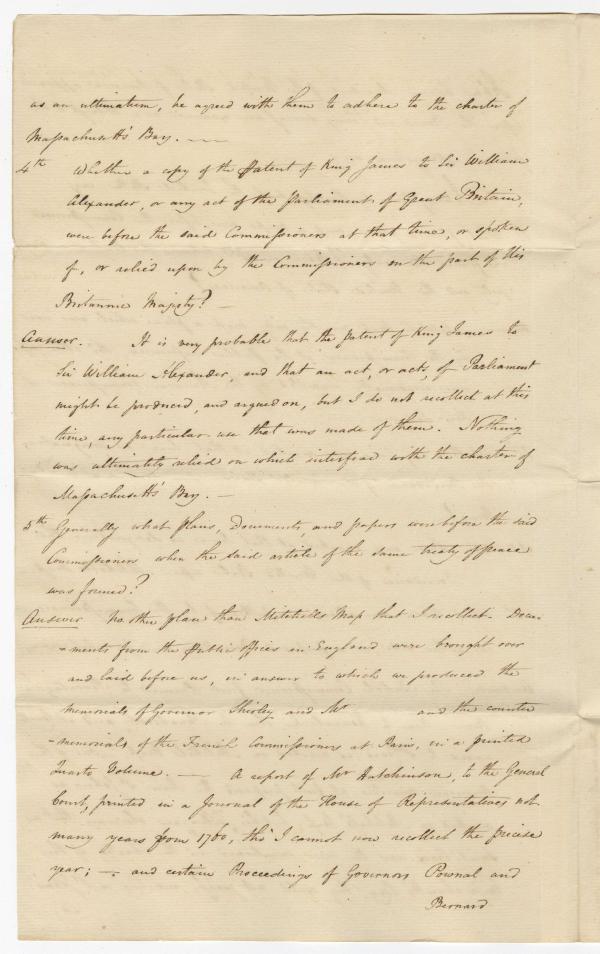 as an ultimatum, he agreed with them to adhere to the charter of
Massachusett's Bay. —
4th Whether a copy of the Patent of King James to Sir William
Alexander, or any act of the Parliament of Great Britain,
were before the said Commissioners at that time, or spoken
of, or relied upon by the Commissioners on the part of His
Britannic Majesty? —
Answer. It is very probable that the patent of King James to
Sir William Alexander, and that an act, or acts, of Parliament
might be produced, and argued on, but I do not recollect at this
time, any particular use that was made of them. Nothing
was ultimately relied on which interfered with the charter of
Massachusett's Bay. —
5th Generally what plans, Documents, and papers were before the said
Commissioners when the said article of the same treaty of peace
was formed?
Answer No other plan than Mitchells Map that I recollect. Docu-
-ments from the Public offices in England were brought over
and laid before us, in answer to which we produced the
memorials of Governor Shirley and Mr and the counter
-memorials of the French Commissioners at Paris, in a printed
Quarto Volume. — A report of Mr Hutchinson, to the General
Court, printed in a Journal of the House of Representatives not
many years from 1760, tho' I cannot now recollect the precise
year; — and certain Proceedings of Governors Pownal and
Bernard